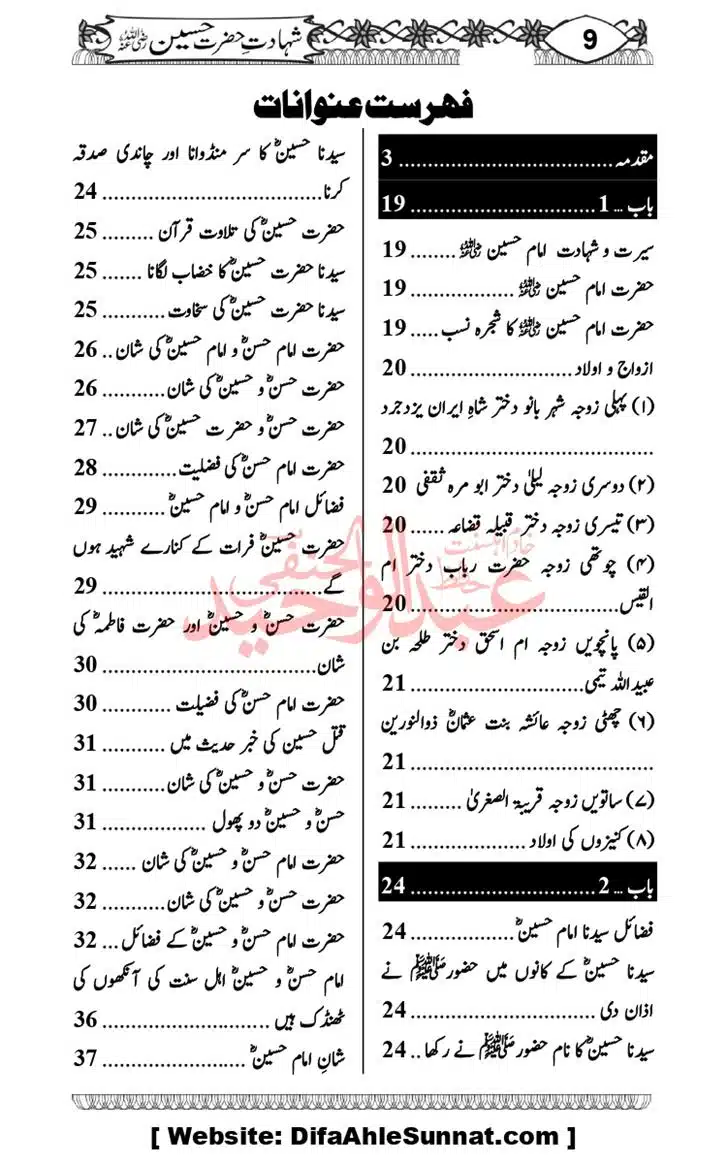 9
شہادتِ حضرت حسین رضی اللہ عنہ
فہرست عنوانات
مقدمہ ..................................... 3
باب ... 1 ................................ 19
سیرت و شہادت امام حسین رضی اللہ عنہ ........ 19
حضرت امام حسین رضی اللہ عنہ .............. 19
حضرت امام حسین رضی اللہ عنہ کا شجرہ نسب ..... 19
ازواج و اولاد ............................ 20
(۱) پہلی زوجہ شہر بانو دختر شاہِ ایران یزدجرد
.......................................... 20
(۲) دوسری زوجہ لیلیٰ دختر ابو مرہ ثقفی 20
(۳) تیسری زوجہ دختر قبیلہ قضاعہ ...... 20
(۴) چوتھی زوجہ حضرت رباب دختر ام
القیس .................................... 20
(۵) پانچویں زوجہ ام اسحٰق دختر طلحہ بن
عبیداللہ تیمی .............................. 21
(۶) چھٹی زوجہ عائشہ بنت عثمانؓ ذوالنورین
.......................................... 21
(۷) ساتویں زوجہ قریبۃ الصغریٰ ......... 21
(۸) کنیزوں کی اولاد .................... 21
باب ... 2 ................................ 24
فضائل سیدنا امام حسینؓ .................. 24
سیدنا حسینؓ کے کانوں میں حضورﷺ نے
اذان دی ................................. 24
سیدنا حسینؓ کا نام حضورﷺ نے رکھا .. 24
سیدنا حسینؓ کا سر منڈوانا اور چاندی صدقہ
کرنا ...................................... 24
حضرت حسینؓ کی تلاوت قرآن ......... 25
سیدنا حضرت حسینؓ کا خضاب لگانا ....... 25
سیدنا حضرت حسینؓ کی سخاوت ........... 25
حضرت امام حسنؓ و امام حسینؓ کی شان .. 26
حضرت حسنؓ و حسینؓ کی شان ........... 26
حضرت حسنؓ و حضرت حسینؓ کی شان .. 27
حضرت امام حسنؓ کی فضلیت ............. 28
فضائل امام حسنؓ و امام حسینؓ ........... 29
حضرت حسینؓ فرات کے کنارے شہید ہوں
گے ....................................... 29
حضرت حسنؓ و حسینؓ اور حضرت فاطمہؓ کی
شان ..................................... 30
حضرت امام حسنؓ کی فضیلت ............. 30
قتل حسین کی خبر حدیث میں ........... 31
حضرت حسنؓ و حسینؓ کی شان ........... 31
حسنؓ و حسینؓ دو پھول .................. 31
حضرت امام حسنؓ و حسینؓ کی شان ...... 32
حضرت حسنؓ و حسینؓ کی شان ........... 32
حضرت امام حسنؓ و حسینؓ کے فضائل ... 32
امام حسنؓ و حسینؓ اہل سنت کی آنکھوں کی
ٹھنڈک ہیں ............................. 36
شانِ امام حسینؓ ......................... 37
خادم اہلسنت
حافظ عبدالوحید الحنفی
[ Website: DifaAhleSunnat.com ]